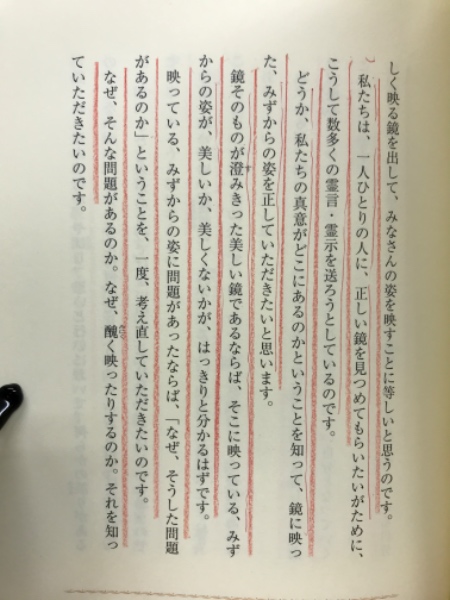 しく映る鏡を出して、みなさんの姿を映すことに等しいと思うのです。
私たちは、一人ひとりの人に、正しい鏡を見つめてもらいたいがために、
こうして数多くの霊言・霊示を送ろうとしているのです。
どうか、私たちの真意がどこにあるのかということを知って、鏡に映っ
た、みずからの姿を正していただきたいと思います。
鏡そのものが澄みきった美しい鏡であるならば、そこに映っている、みず
からの姿が、美しいか、美しくないかが、はっきりと分かるはずです。
映っている、みずからの姿に問題があったならば、「なぜ、そうした問題
があるのか」ということを、一度、考え直していただきたいのです。
なぜ、そんな問題があるのか。なぜ、醜く映ったりするのか。それを知っ
ていただきたいのです。